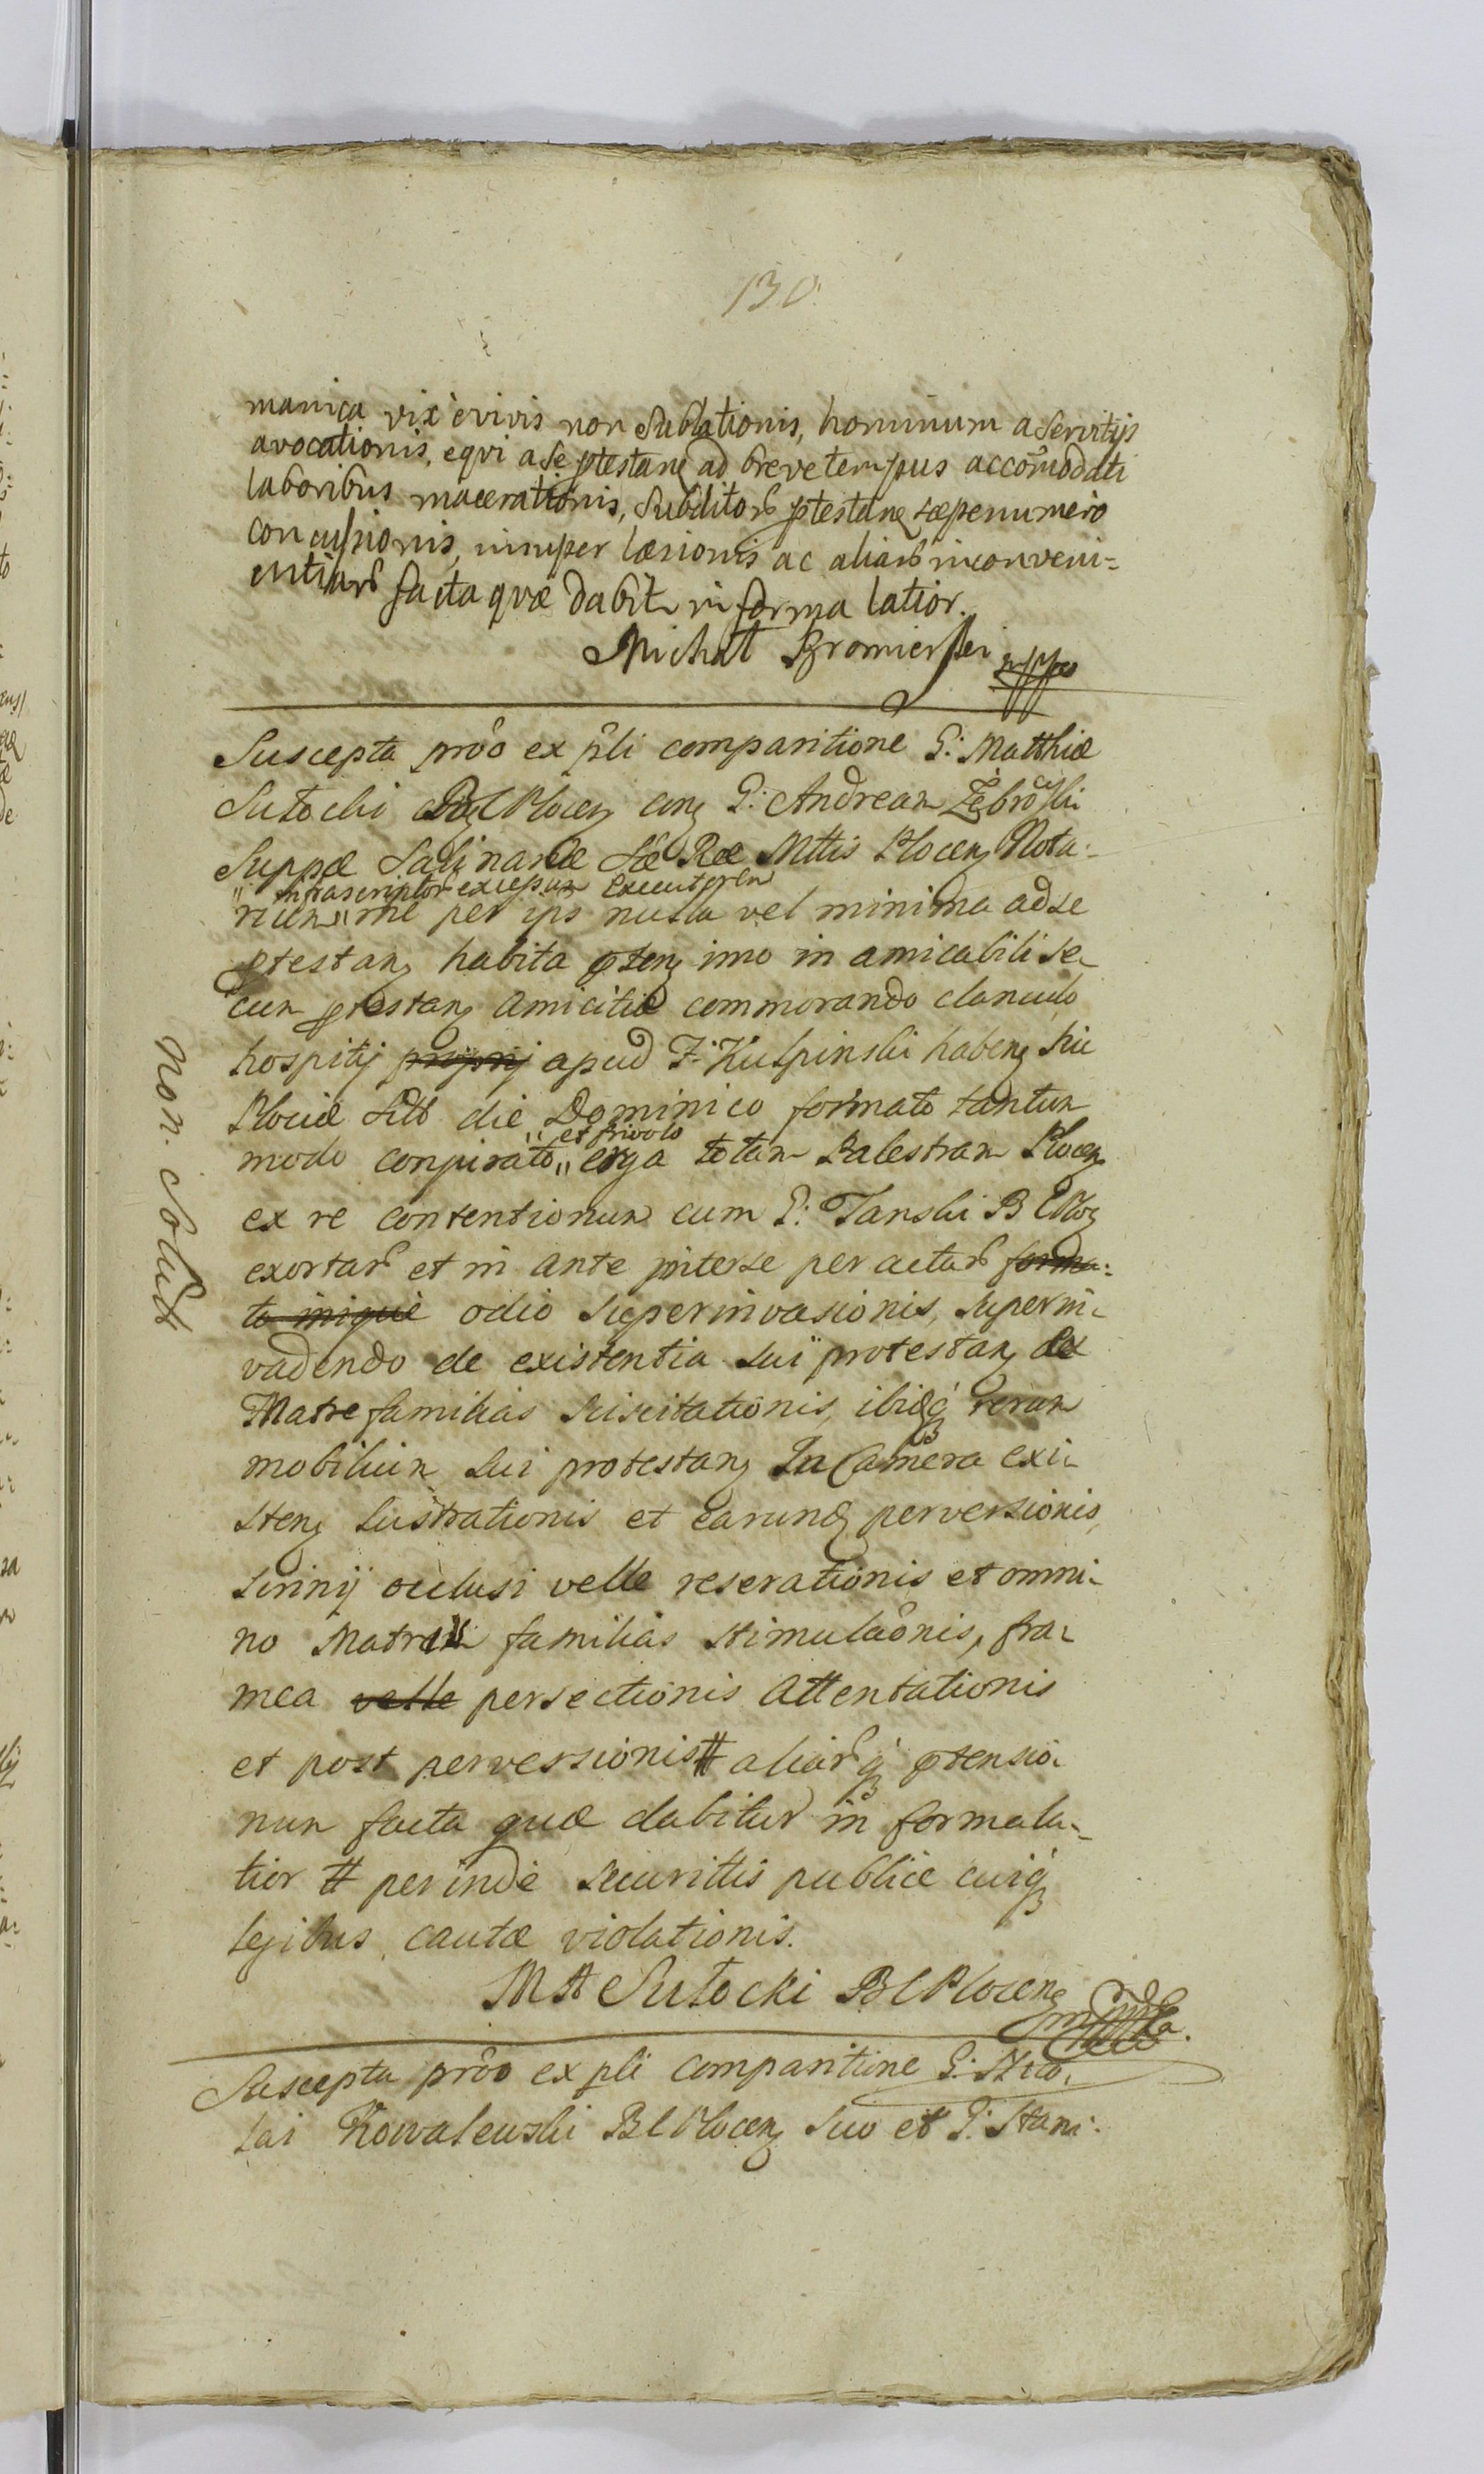 130.
manica vix è vivis non sublationis, hominum a servitijs
avocationis, eqvi a se ptestanₑ ad breve tempus accōmodati
laboribus macerationis, subditorᵬ ptestanₑ sæpenumero
concussionis, nuuper læsionis ac aliarᵬ inconveni=
entiarᵬ facta qvæ dabitₑ in forma latior.
Michał Bromierski mppa
Suscepta prôo ex pli comparitione G: Matthiæ
Sutocki Plocenₑ conₑ G: Andream Zębrocki
Suppæ Salinariæ Sæ Ræ Mttis Plocenₑ Nota-
" infrascriptorᵬ excessum Executorem
rium " me per ips nulla vel minima ad se
ptestanₑ habita ptenₑ imo in amicabili se-
cum ptestanₑ amicitia commorando clanculo
hospitij proprij apud F: Kulpinski habenₑ hic
Plociæ sub die Dominico formato tantum
" et frivolo
modo conspirato " erga totam Palestram Plocenₑ
ex re contentionum cum G: Tanski B C Plocₑ
exortarᵬ et in ante interse peractarᵬ forma:
to iniquè odio superinvasionis, superin-
vadendo de existentia sui protestanₑ ex
Matre familias sciscitationis, ibidqꝫ rerum
mobilium sui protestanₑ In Camera exi-
stenₑ lustrationis et earundₑ perversionis,
scrinij occlusi velle reserationis et omni-
no Matris familias stimulaônis, fra-
mea velle persectionis attentationis
et post perversionis # aliarᵬqꝫ ptensio-
num facta quæ dabitur in forma la-
tior # perinde securittis publicæ cuiqꝫ
legibus cautæ violationis.
Mtt Sutocki B C Plocenₑ mppa.
Suscepta prôo ex pli comparitione G: Nico-
lai Kowalewski B C Plocenₑ suo et G: Stani:
Non. Solut